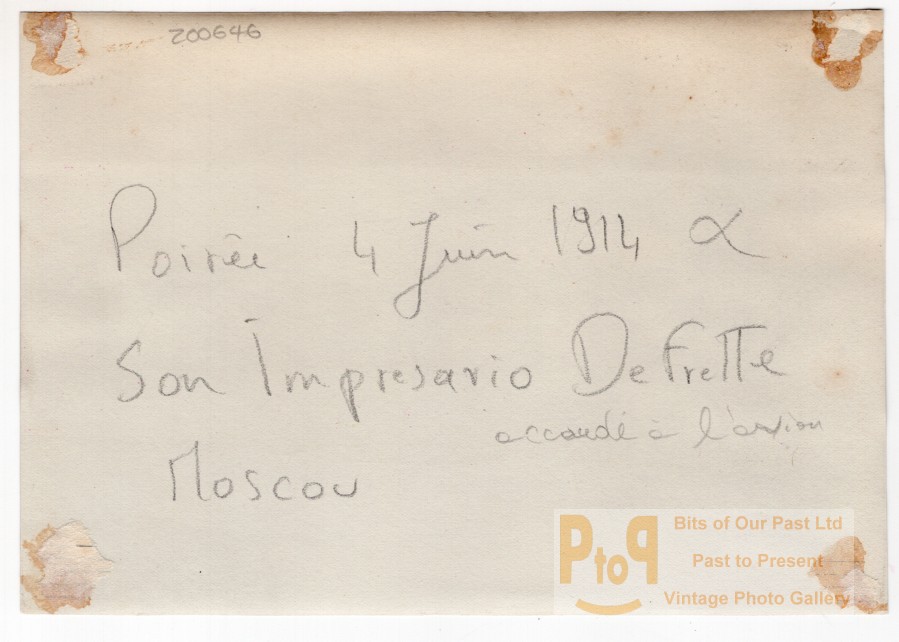 200646
Poirée 4 Juin 1914 &
Son Impresario DeFrette
accoudé à l'avion
Moscou
PtoP
Bits of Our Past Ltd
Past to Present
Vintage Photo Gallery